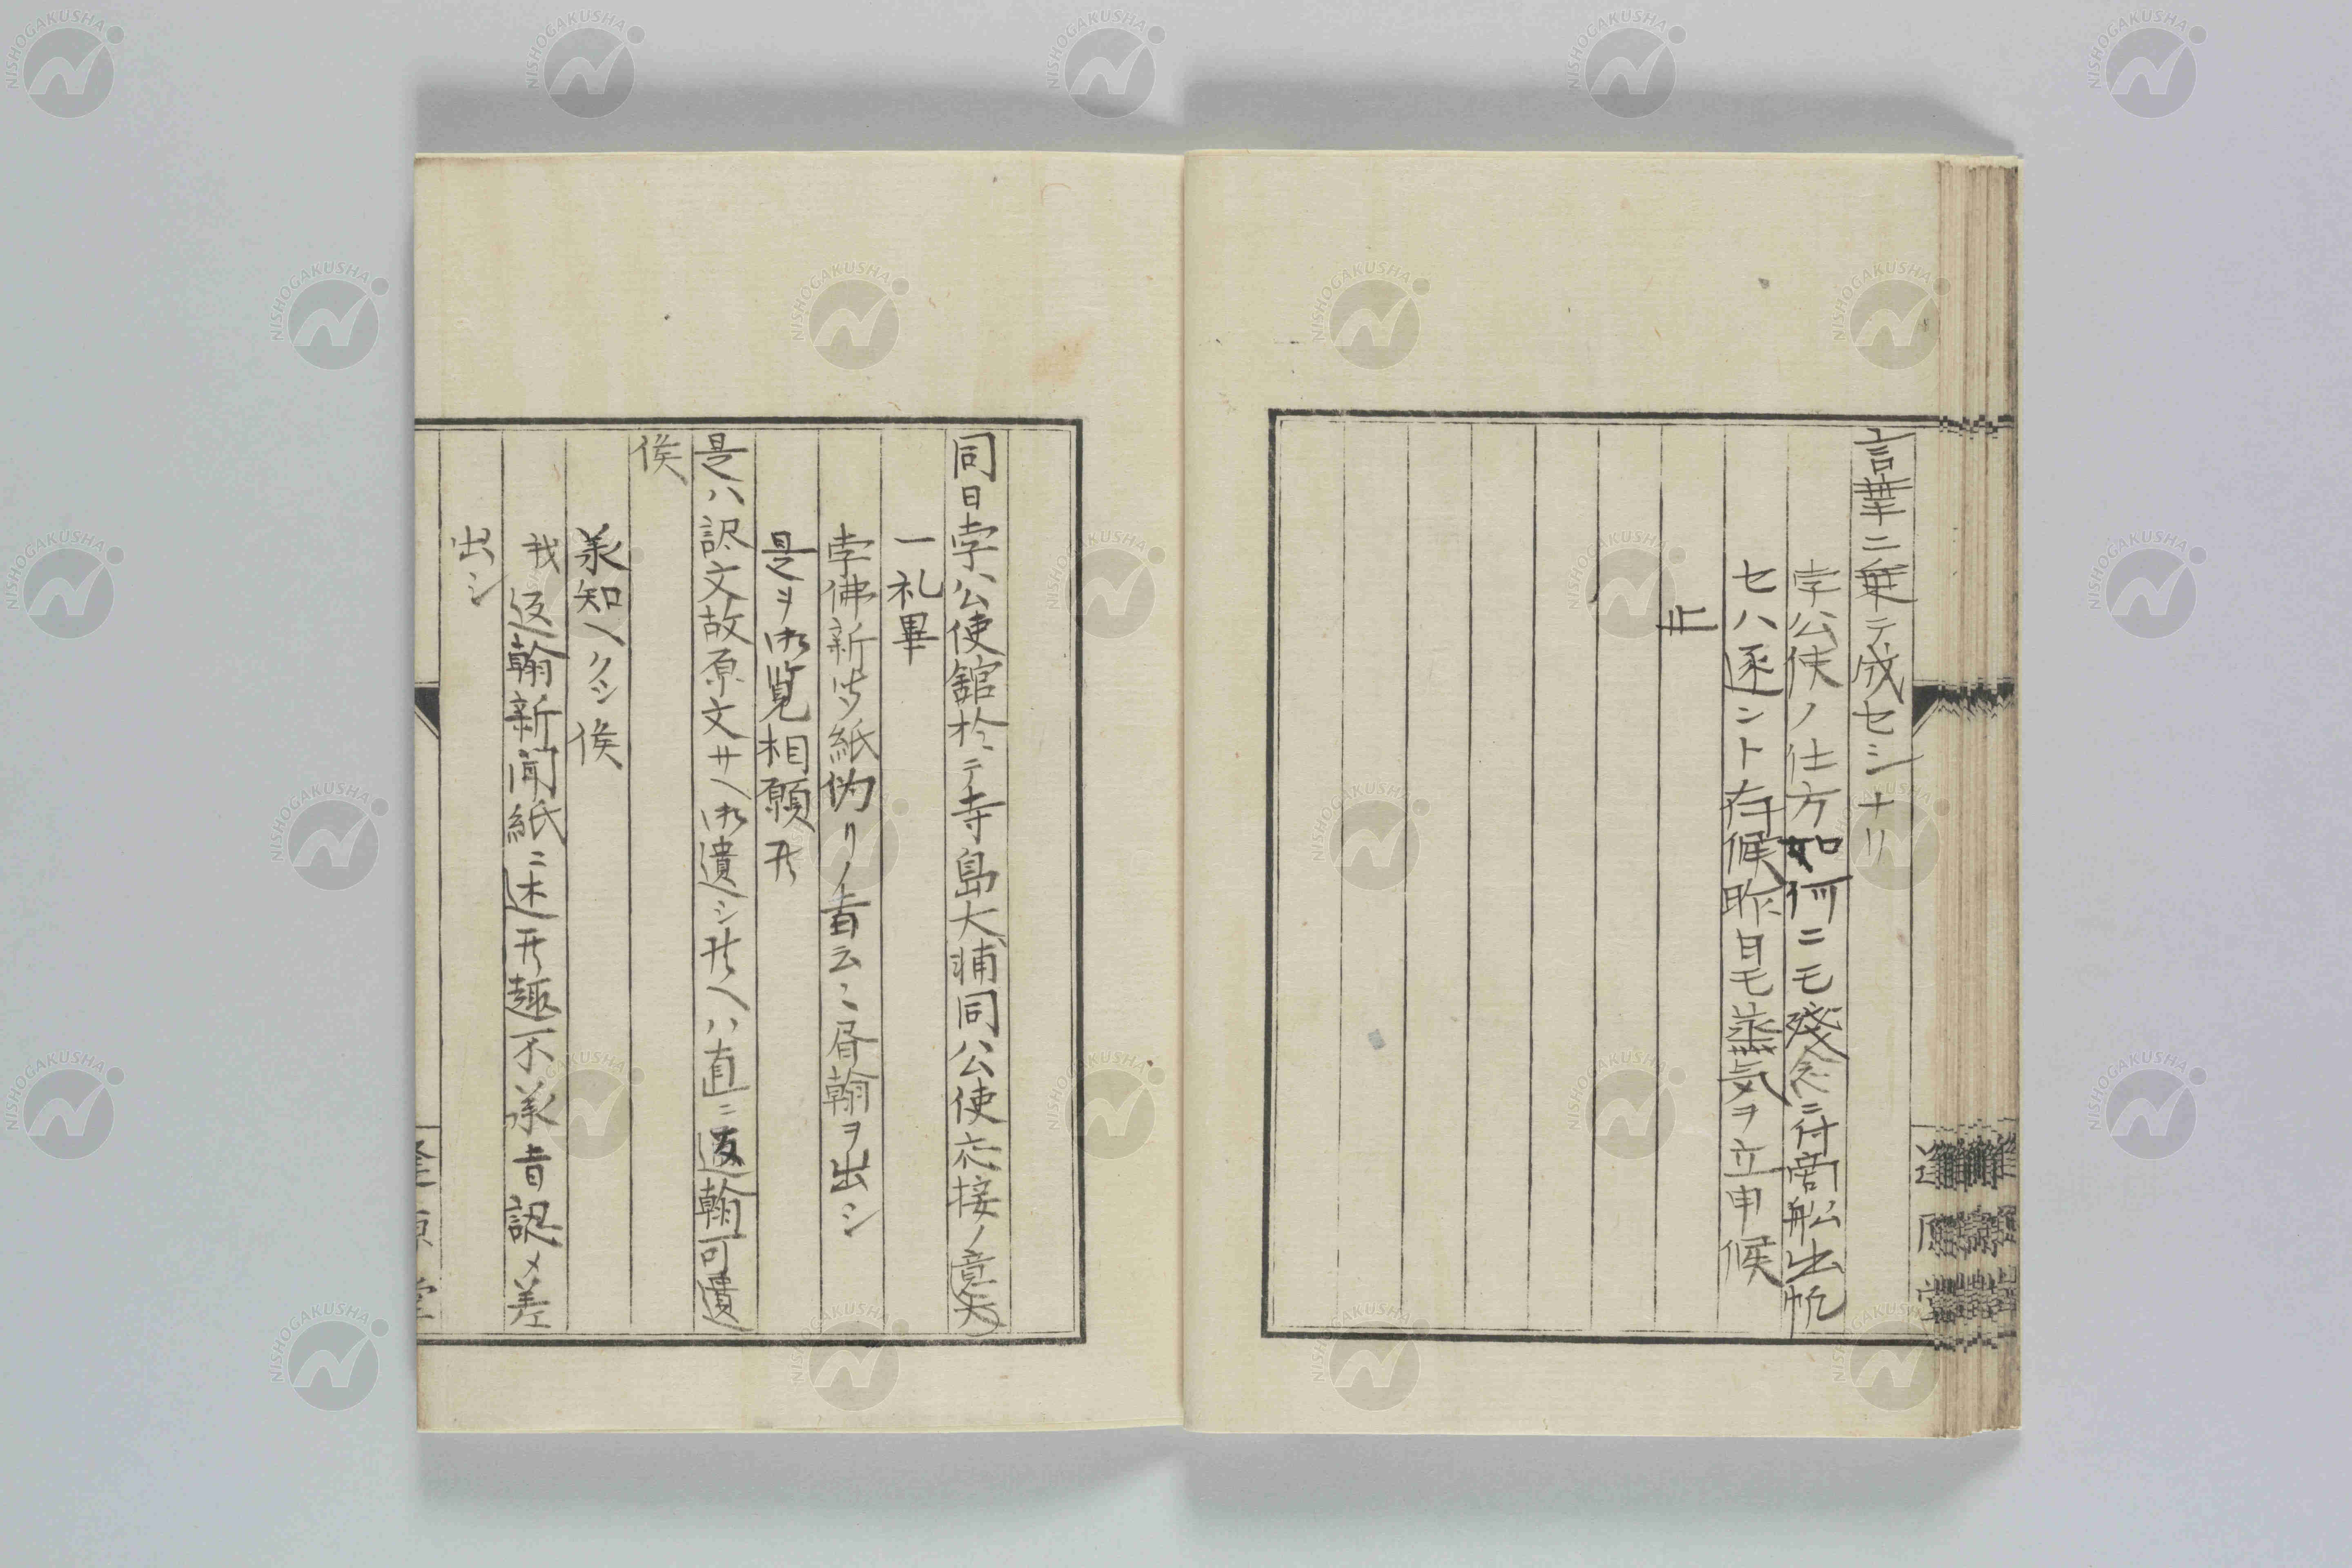 言葉ニ乗テ成セシナリ
孛公使ノ仕方如何ニモ残念ニ付商船出帆
セハ逐ント存候昨日モ蒸気ヲ立申候
止
同日孛公使舘於テ寺島大輔同公使応接ノ意
一礼畢
孛佛新聞紙偽リノ旨云々届翰ヲ出シ
是ヲ御覧相願度
是ハ訳文故原文サヘ御遣シ候ヘハ直ニ返翰可遣
候
承知ヘクシ候
我返翰新聞紙ニ述度趣不承旨認メ差
出シ
NISHOGAKUSHA